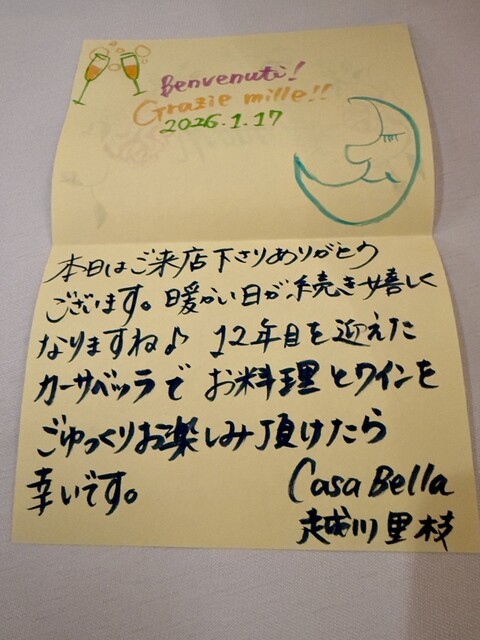 Benvenuti!
Grazie mille!!
2026.1.17
本日はご来店下さりありがとう
ございます。暖かい日が続き嬉しく
なりますね♪ 12年目を迎えた
カーサベッラで お料理とワインを
ごゆっくりお楽しみ頂けたら
幸いです。
Casa Bella
越川里枝